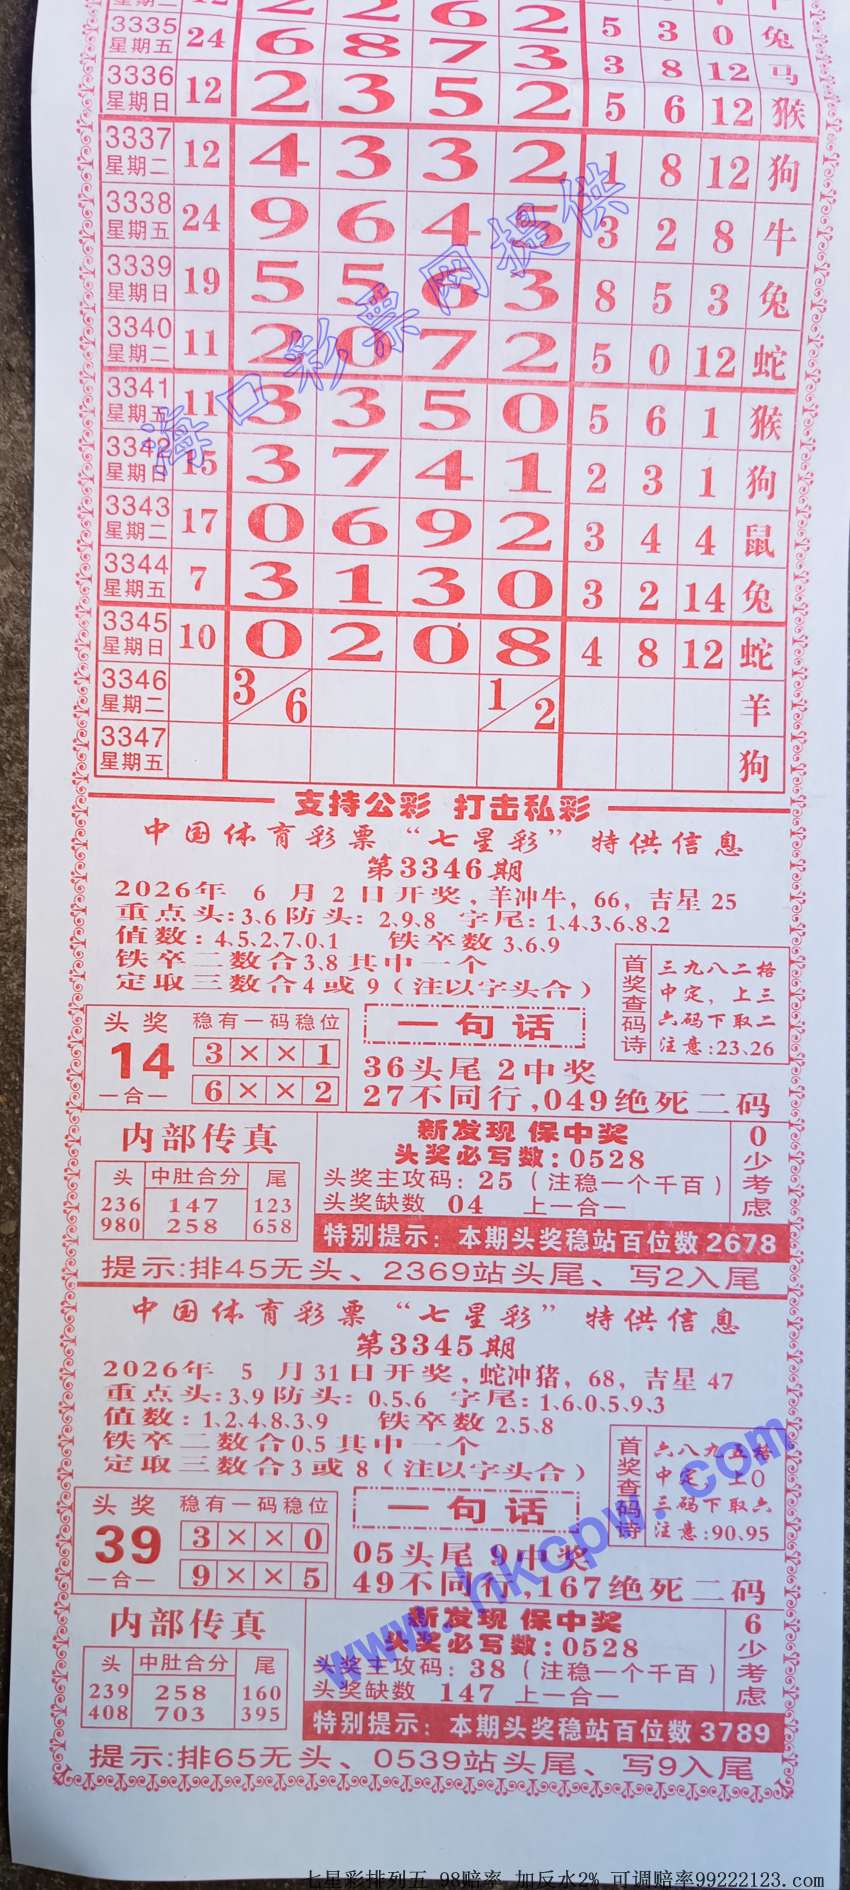 星期二 12 2 2 6 2
3335 星期五 24 6 8 7 3 5 3 0 兔
3 8 12 马
3336 星期日 12 2 3 5 2 5 6 12 猴
3337 星期二 12 4 3 3 2 1 8 12 狗
3338 星期五 24 9 6 4 5 3 2 8 牛
3339 星期日 19 5 5 6 3 8 5 3 兔
3340 星期二 11 2 0 7 2 5 0 12 蛇
3341 星期五 11 3 3 5 0 5 6 1 猴
3342 星期日 15 3 7 4 1 2 3 1 狗
3343 星期二 17 0 6 9 2 3 4 4 鼠
3344 星期五 7 3 1 3 0 3 2 14 兔
3345 星期日 10 0 2 0 8 4 8 12 蛇
3346 星期二 3/6 1/2 羊
3347 星期五 狗
海口彩票网提供
支持公彩 打击私彩
中国体育彩票“七星彩”特供信息
第3346期
2026年 6 月 2 日开奖,羊冲牛,66,吉星25
重点头:3、6防头: 2、9、8 字尾:1、4、3、6、8、2
值数:4、5、2、7、0、1 铁卒数3、6、9
铁卒二数合3、8其中一个
定取三数合4或9(注以字头合)
首奖查码诗
三九八二格
中定,上三
六码下取二
注意:23、26
头奖
14
一合一
稳有一码稳位
3 × × 1
6 × × 2
一句话
36头尾2中奖
27不同行,049绝死二码
内部传真
头 中肚合分 尾
236 147 123
980 258 658
新发现 保中奖
头奖必写数:0528
头奖主攻码:25(注稳一个千百)
头奖缺数 04 上一合一
0少考虑
特别提示:本期头奖稳站百位数2678
提示:排45无头、2369站头尾、写2入尾
中国体育彩票“七星彩”特供信息
第3345期
2026年 5 月31日开奖,蛇冲猪,68,吉星47
重点头:3、9防头: 0、5、6 字尾:1、6、0、5、9、3
值数:1、2、4、8、3、9 铁卒数2、5、8
铁卒二数合0、5其中一个
定取三数合3或8(注以字头合)
首奖查码诗
六八九五格
中定,上0
三码下取六
注意:90、95
头奖
39
一合一
稳有一码稳位
3 × × 0
9 × × 5
一句话
05头尾9中奖
49不同行,167绝死二码
www.hkcpw.com
内部传真
头 中肚合分 尾
239 258 160
408 703 395
新发现 保中奖
头奖必写数:0528
头奖主攻码:38(注稳一个千百)
头奖缺数 147 上一合一
6少考虑
特别提示:本期头奖稳站百位数3789
提示:排65无头、0539站头尾、写9入尾
七星彩排列五 98赔率 加反水2% 可调赔率99222123.com